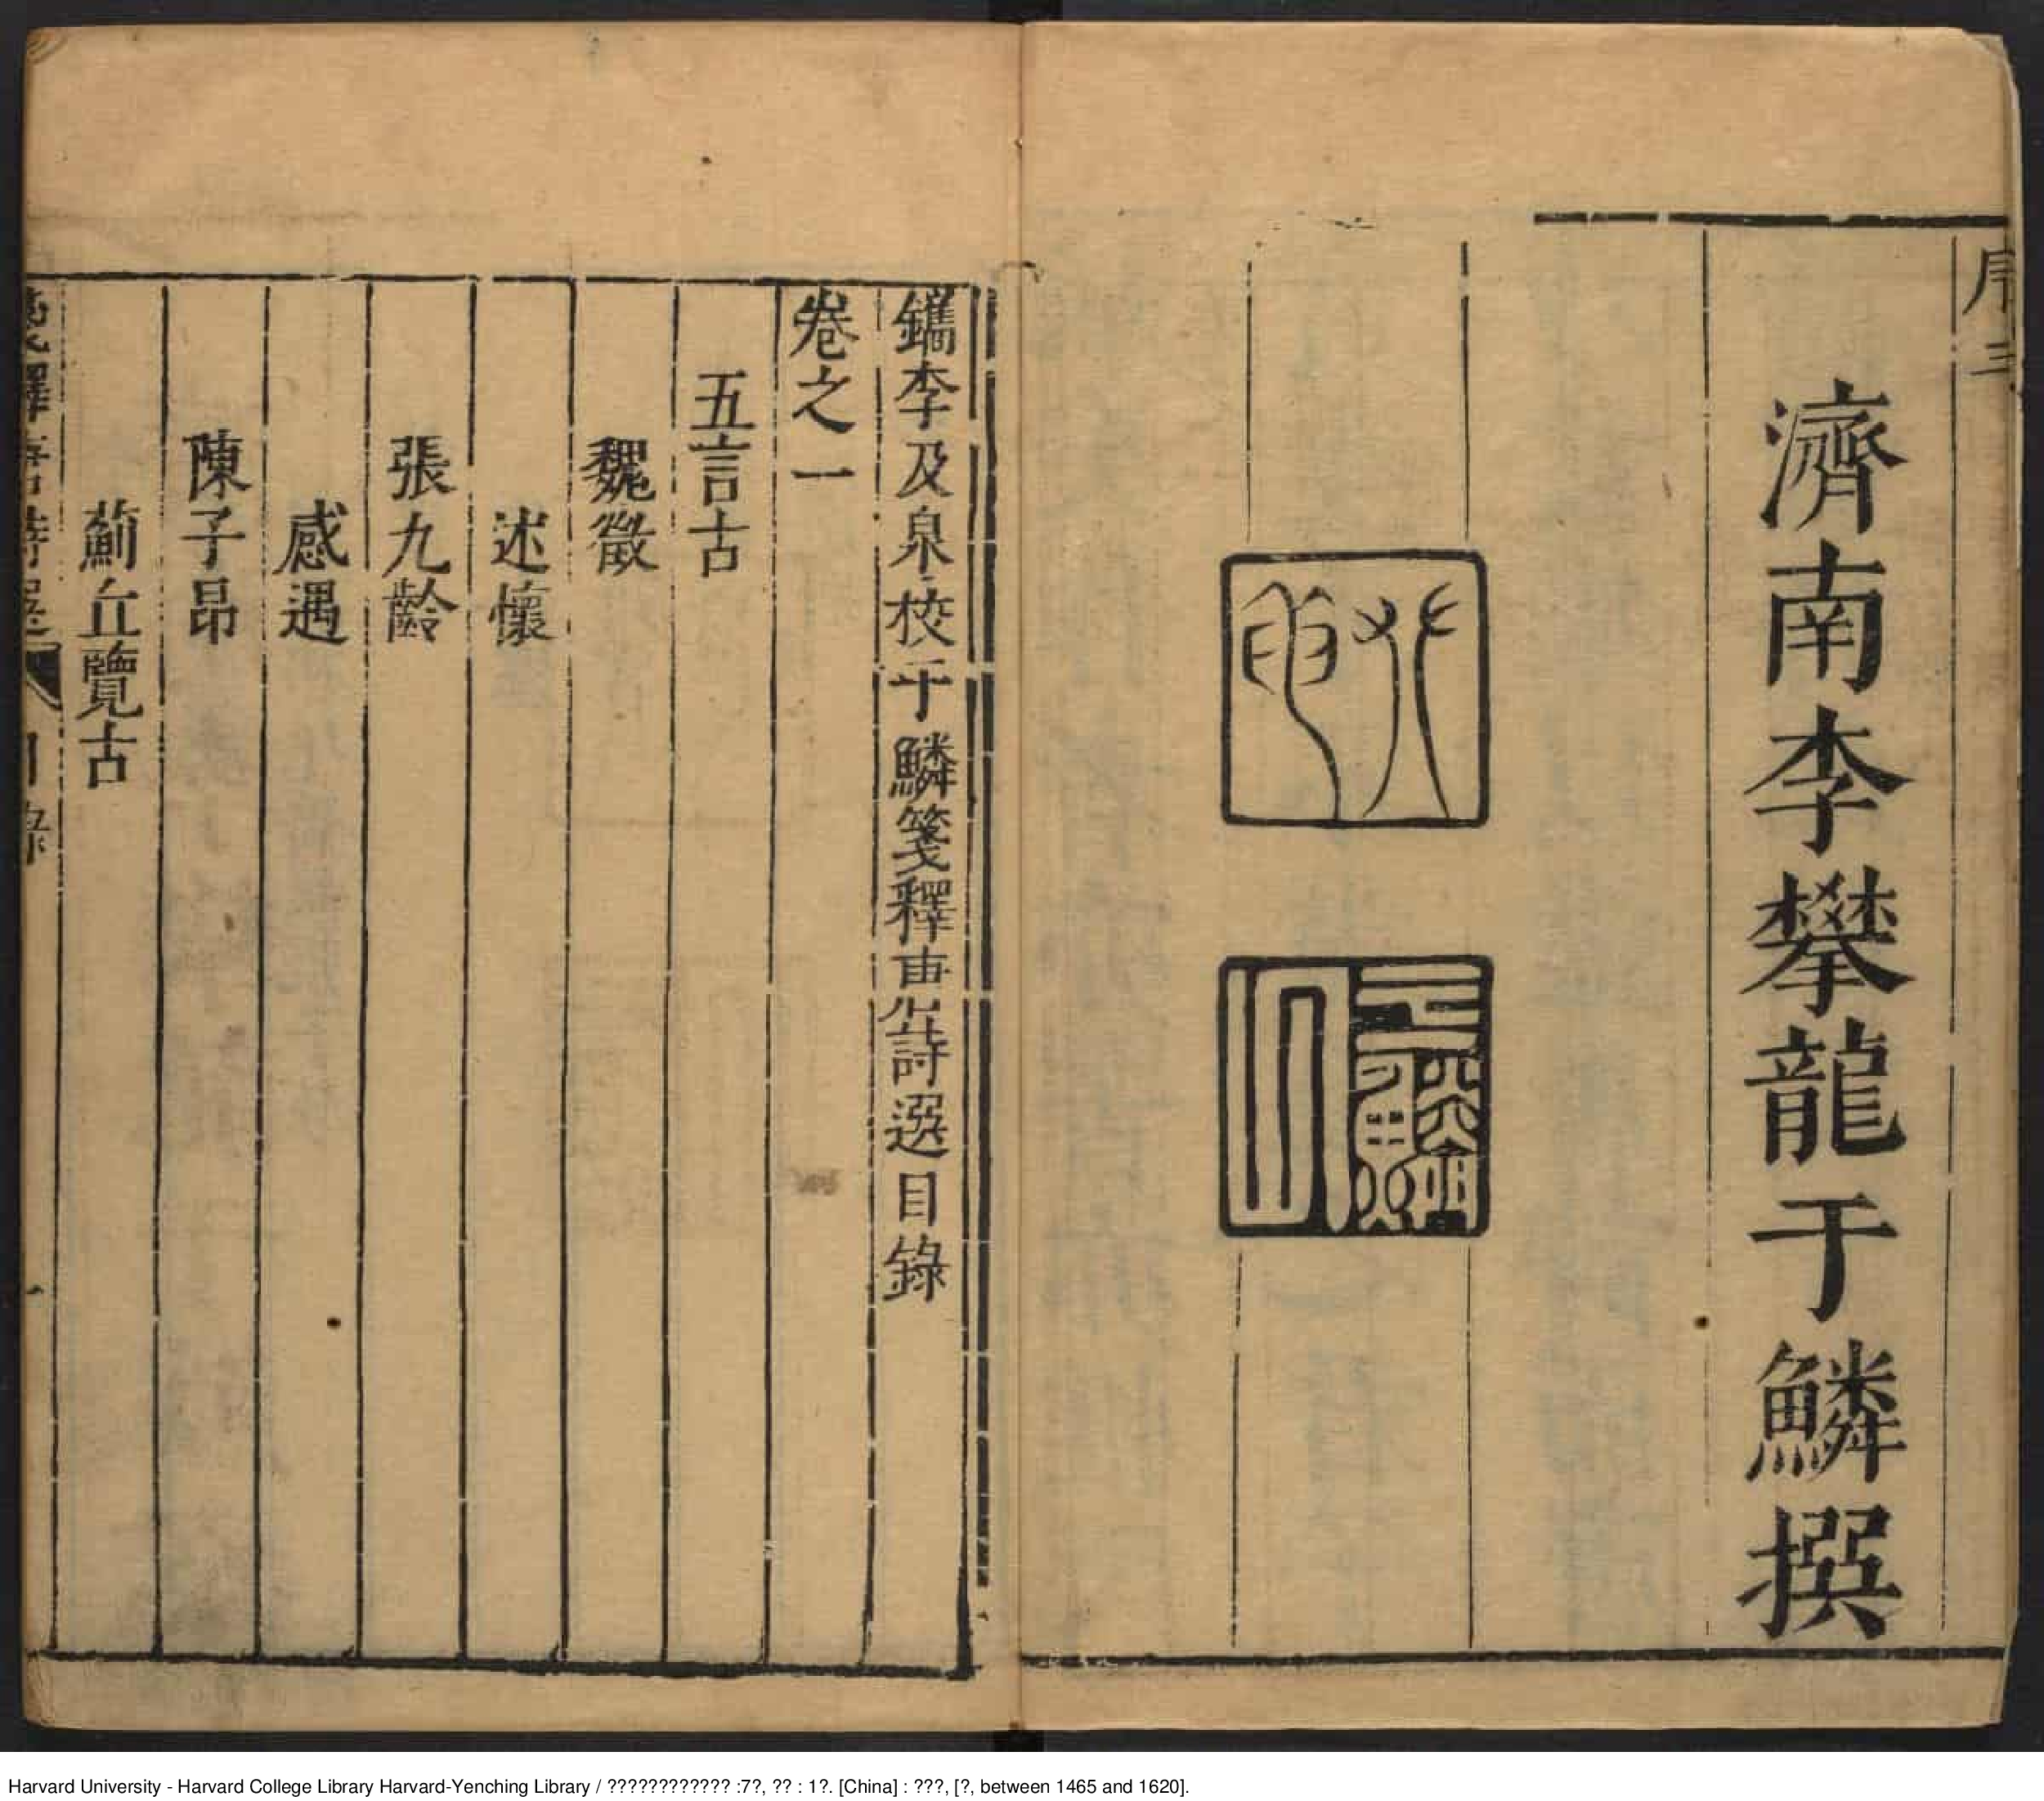 序 三
濟南李攀龍于鱗撰
鐫李及泉校于鱗箋釋唐詩選目錄
卷之一
五言古
魏徵
述懷
張九齡
感遇
陳子昂
薊丘覽古
箋釋唐詩選 目錄 一
Harvard University - Harvard College Library Harvard-Yenching Library / ???????????? :7?, ?? : 1?. [China] : ???, [?, between 1465 and 1620].